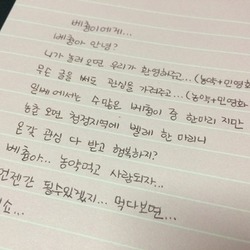 베충이에게...
베충아 안녕?
니가 놀러 오면 우리가 환영해주고...(농약+민영화
무슨 글을 써도 관심을 가져주고...(농약+민영화
일베에서는 수많은 베충이 중 한마리 지만
농촌 오면 청정지역에 벌레 한 마리니
온갖 관심 다 받고 행복하지?
베충아... 농약먹고 사람되자..
언젠간 될수있겠지... 먹다보면...